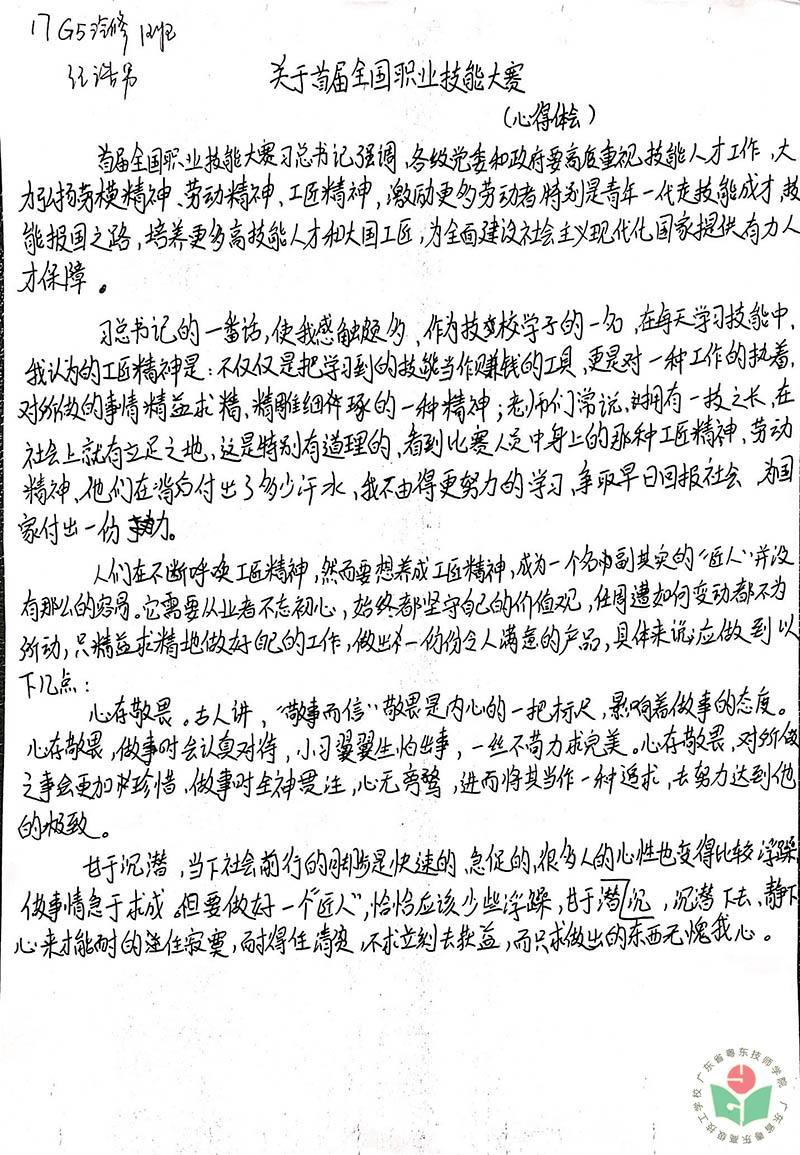 17G5汽修1班
关于首届全国职业技能大赛
(心得体会)
首届全国职业技能大赛习总书记强调,各级党委和政府要高度重视技能人才工作,大
力弘扬劳模精神、劳动精神、工匠精神,激励更多劳动者特别是青年一代走技能成才,技
能报国之路,培养更多高技能人才和大国工匠,为全面建设社会主义现代化国家提供有力人
才保障。
习总书记的一番话,使我感触颇多,作为技校学子的一名,在每天学习技能中,
我认为的工匠精神是:不仅仅是把学习到的技能当作赚钱的工具,更是对一种工作的执着,
对所做的事情精益求精、精雕细琢的一种精神;老师们常说,拥有一技之长,在
社会上就有立足之地,这是特别有道理的,看到比赛人员中身上的那种工匠精神、劳动
精神、他们在背后付出了多少汗水,我不由得更努力的学习,争取早日回报社会,为国
家付出一份努力。
人们在不断呼唤工匠精神,然而要想养成工匠精神,成为一个名内副其实的“匠人”并没
有那么的容易。它需要从业者不忘初心,始终都坚守自己的价值观,任周遭如何变动都不为
所动,只精益求精地做好自己的工作,做出一份份令人满意的产品,具体来说应做到以
下几点:
心存敬畏。古人讲,“敬事而信”敬畏是内心的一把标尺,影响着做事的态度。
心存敬畏,做事时会认真对待,小习翼翼生怕出事,一丝不苟力求完美。心存敬畏,对所做
之事会更加珍惜,做事时全神贯注,心无旁骛,进而将其当作一种追求,去努力达到他
的极致。
甘于沉潜,当下社会前行的脚步是快速的,急促的,很多人的心性也变得比较浮躁
做事情急于求成。但要做好一个“匠人”,恰恰应该少些浮躁,甘于潜沉,沉潜下去、静下
心来才能耐的住寂寞,而耐得住清贫,不求立刻去获益,而只求做出的东西无愧我心。
广东省粤东技师学院
广东省粤东高级技工学校